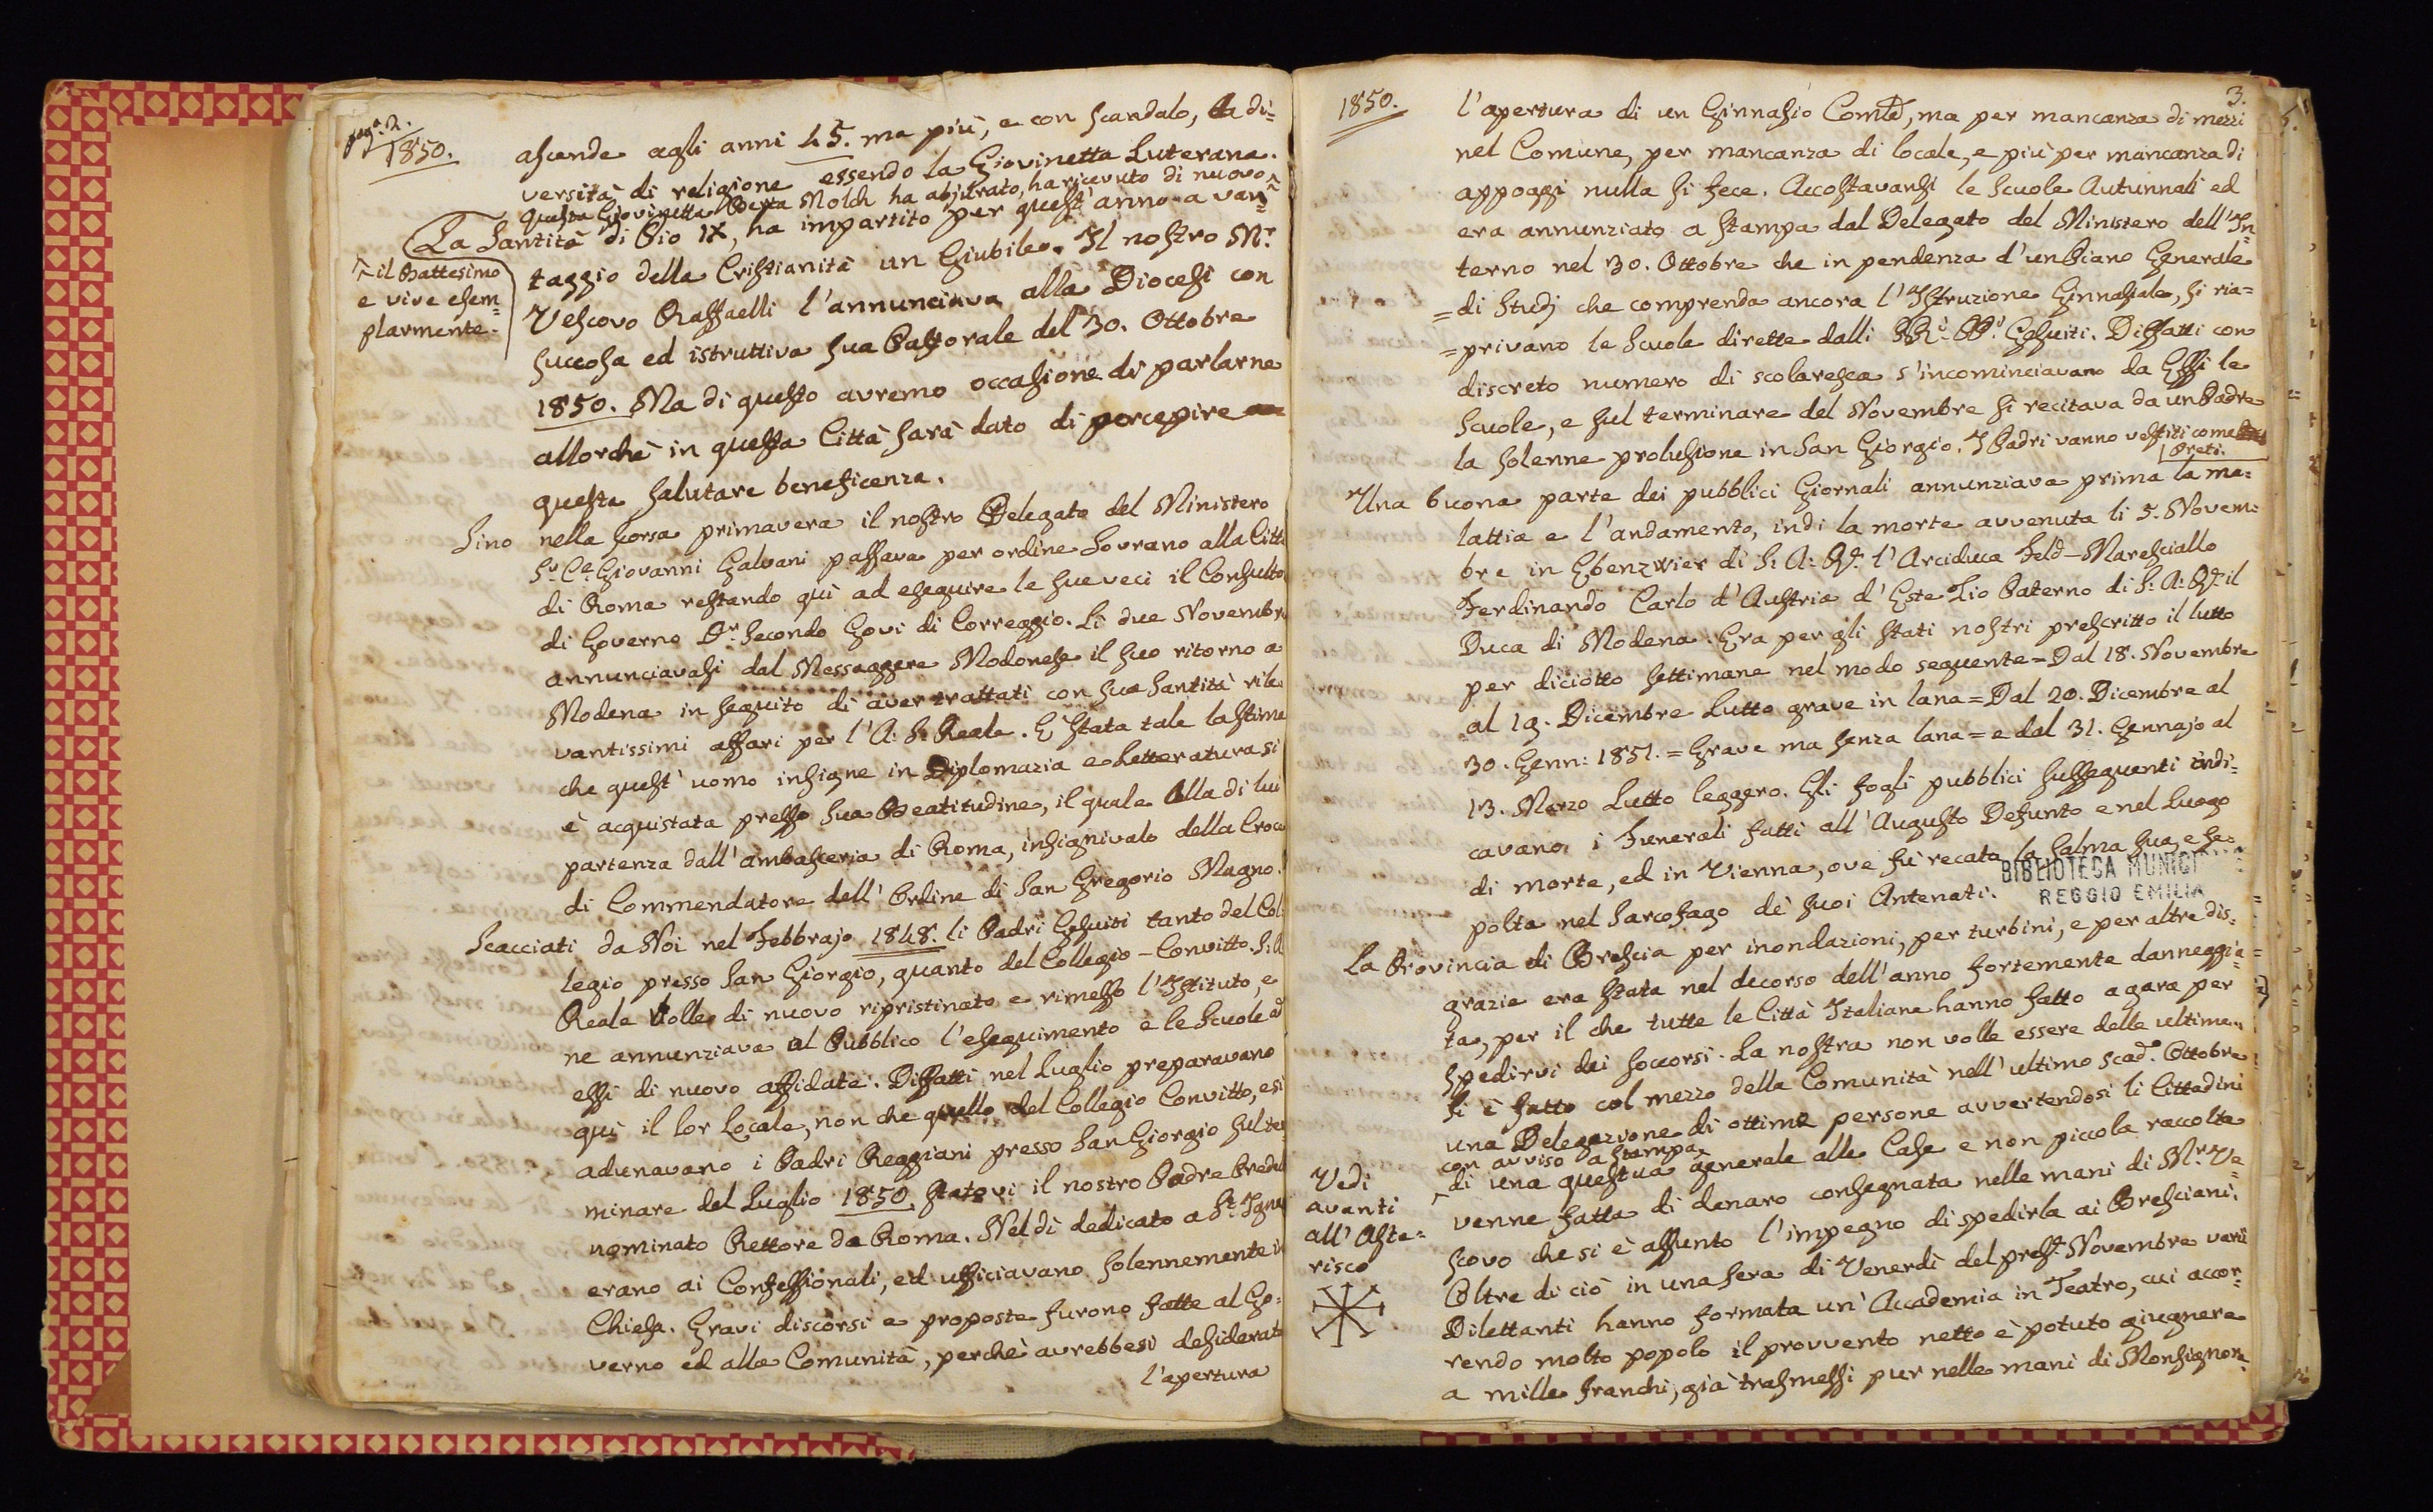 pag.ª 2.
1850.
ascende agli anni 45. ma più, e con scandalo, la di=
versità di religione essendo la Giovinetta Luterana.
questa Giovinetta Berta Molch ha abjurato, ha ricevuto di nuovo ^
^ il Battesimo
e vive esem=
plarmente.
La Santità di Pio IX, ha impartito per quest'anno a van=
taggio della Cristianità un Giubileo. Il nostro Mr.
Vescovo Raffaelli l'annunciava alla Diocesi con
succosa ed istruttiva sua Pastorale del 30. Ottobre
1850. Ma di questo avremo occasione di parlarne
allorchè in questa Città sarà dato di percepire
questa salutare beneficenza.
Sino nella scorsa primavera il nostro Delegato del Ministero
Sr. Ce. Giovanni Galvani passava per ordine Sovrano alla Città
di Roma restando quì ad eseguire le sue veci il Consulto
di Governo Dr. Secondo Govi di Correggio. Li due Novembre
annunciavasi dal Messaggere Modonese il suo ritorno a
Modena in seguito di aver trattati con sua Santità rile=
vantissimi affari per l'A. S. Reale. È stata tale la stima
che quest'uomo insigne in Diplomazia e Letteratura si
è acquistata presso Sua Beatitudine, il quale alla di lui
partenza dall'ambasceria di Roma, insignivalo della Croce
di Commendatore dell'Ordine di San Gregorio Magno.
Scacciati da Noi nel Febbrajo 1848. li Padri Gesuiti tanto del Col=
legio presso San Giorgio, quanto del Collegio-Convitto. S. A.
Reale volle di nuovo ripristinato e rimesso l'Istituto, e
ne annunziava al Pubblico l'eseguimento e le Scuole ad
essi di nuovo affidate. Diffatti nel Luglio preparavano
quì il lor Locale, non che quello del Collegio Convitto, e si
adunavano i Padri Reggiani presso San Giorgio sul ter=
minare del Luglio 1850, statovi il nostro Padre Bredul
nominato Rettore da Roma. Nel dì dedicato a St. Igna
erano ai Confessionali, ed ufficiavano solennemente in
Chiesa. Gravi discorsi e proposte furono fatte al Go=
verno ed alla Comunità, perchè avrebbesi desiderato
l'apertura
1850.
3.
l'apertura di un Ginnasio Comle, ma per mancanza di mezzi
nel Comune, per mancanza di locale, e più per mancanza di
appoggi nulla si fece. Accostavansi le Scuole Autunnali ed
era annunziato a stampa dal Delegato del Ministero dell'In=
terno nel 30. Ottobre che in pendenza d'un Piano Generale
= di Studj che comprenda ancora l'Istruzione Ginnasiale, si ria=
= privano le Scuole dirette dalli RRi. PPi. Gesuiti. Diffatti con
discreto numero di scolaresca s'incominciavano da Essi le
Scuole, e sul terminare del Novembre si recitava da un Padre
la solenne prolusione in San Giorgio. I Padri vanno vestiti come
Preti.
Una buona parte dei pubblici Giornali annunziava prima la ma=
lattia e l'andamento, indi la morte avvenuta li 5. Novem=
bre in Ebenzwier di S. A. R. l'Arciduca Feld-Maresciallo
Ferdinando Carlo d'Austria d'Este Zio Paterno di S. A. R. il
Duca di Modena. Era per gli Stati nostri prescritto il lutto
per diciotto settimane nel modo seguente = Dal 18. Novembre
al 19. Dicembre Lutto grave in lana = Dal 20. Dicembre al
30. Genn: 1851. = Grave ma senza lana = e dal 31. Gennajo al
13. Marzo Lutto leggero. Gli fogli pubblici susseguenti indi=
cavano i Funerali fatti all'Augusto Defunto e nel Luogo
di morte, ed in Vienna, ove fù recata la Salma sua, e se=
polta nel Sarcofago de' suoi Antenati.
BIBLIOTECA MUNICI
REGGIO EMILIA
La Provincia di Brescia per inondazioni, per turbini, e per altre dis=
grazie era stata nel decorso dell'anno fortemente danneggia=
ta, per il che tutte le Città Italiane hanno fatto a gara per
spedirvi dei soccorsi. La nostra non volle essere delle ultime,
si è fatto col mezzo della Comunità nell'ultimo scad.o Ottobre
una Delegazione di ottime persone avvertendosi li Cittadini
con avviso a stampa
^ di una questua generale alle Case e non piccola raccolta
venne fatta di denaro consegnata nelle mani di Mr. Ve=
scovo che si è assunto l'impegno di spedirla ai Bresciani.
Vedi
avanti
all'Aste=
risco
Oltre di ciò in una sera di Venerdì del presst. Novembre varii
Dilettanti hanno formata un'Accademia in Teatro, cui accor=
rendo molto popolo il provvento netto è potuto giugnere
a mille franchi, già trasmessi pur nelle mani di Monsignore